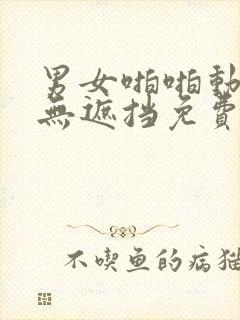 男女啪啪動
無遮挡免費
不喫鱼的病猫